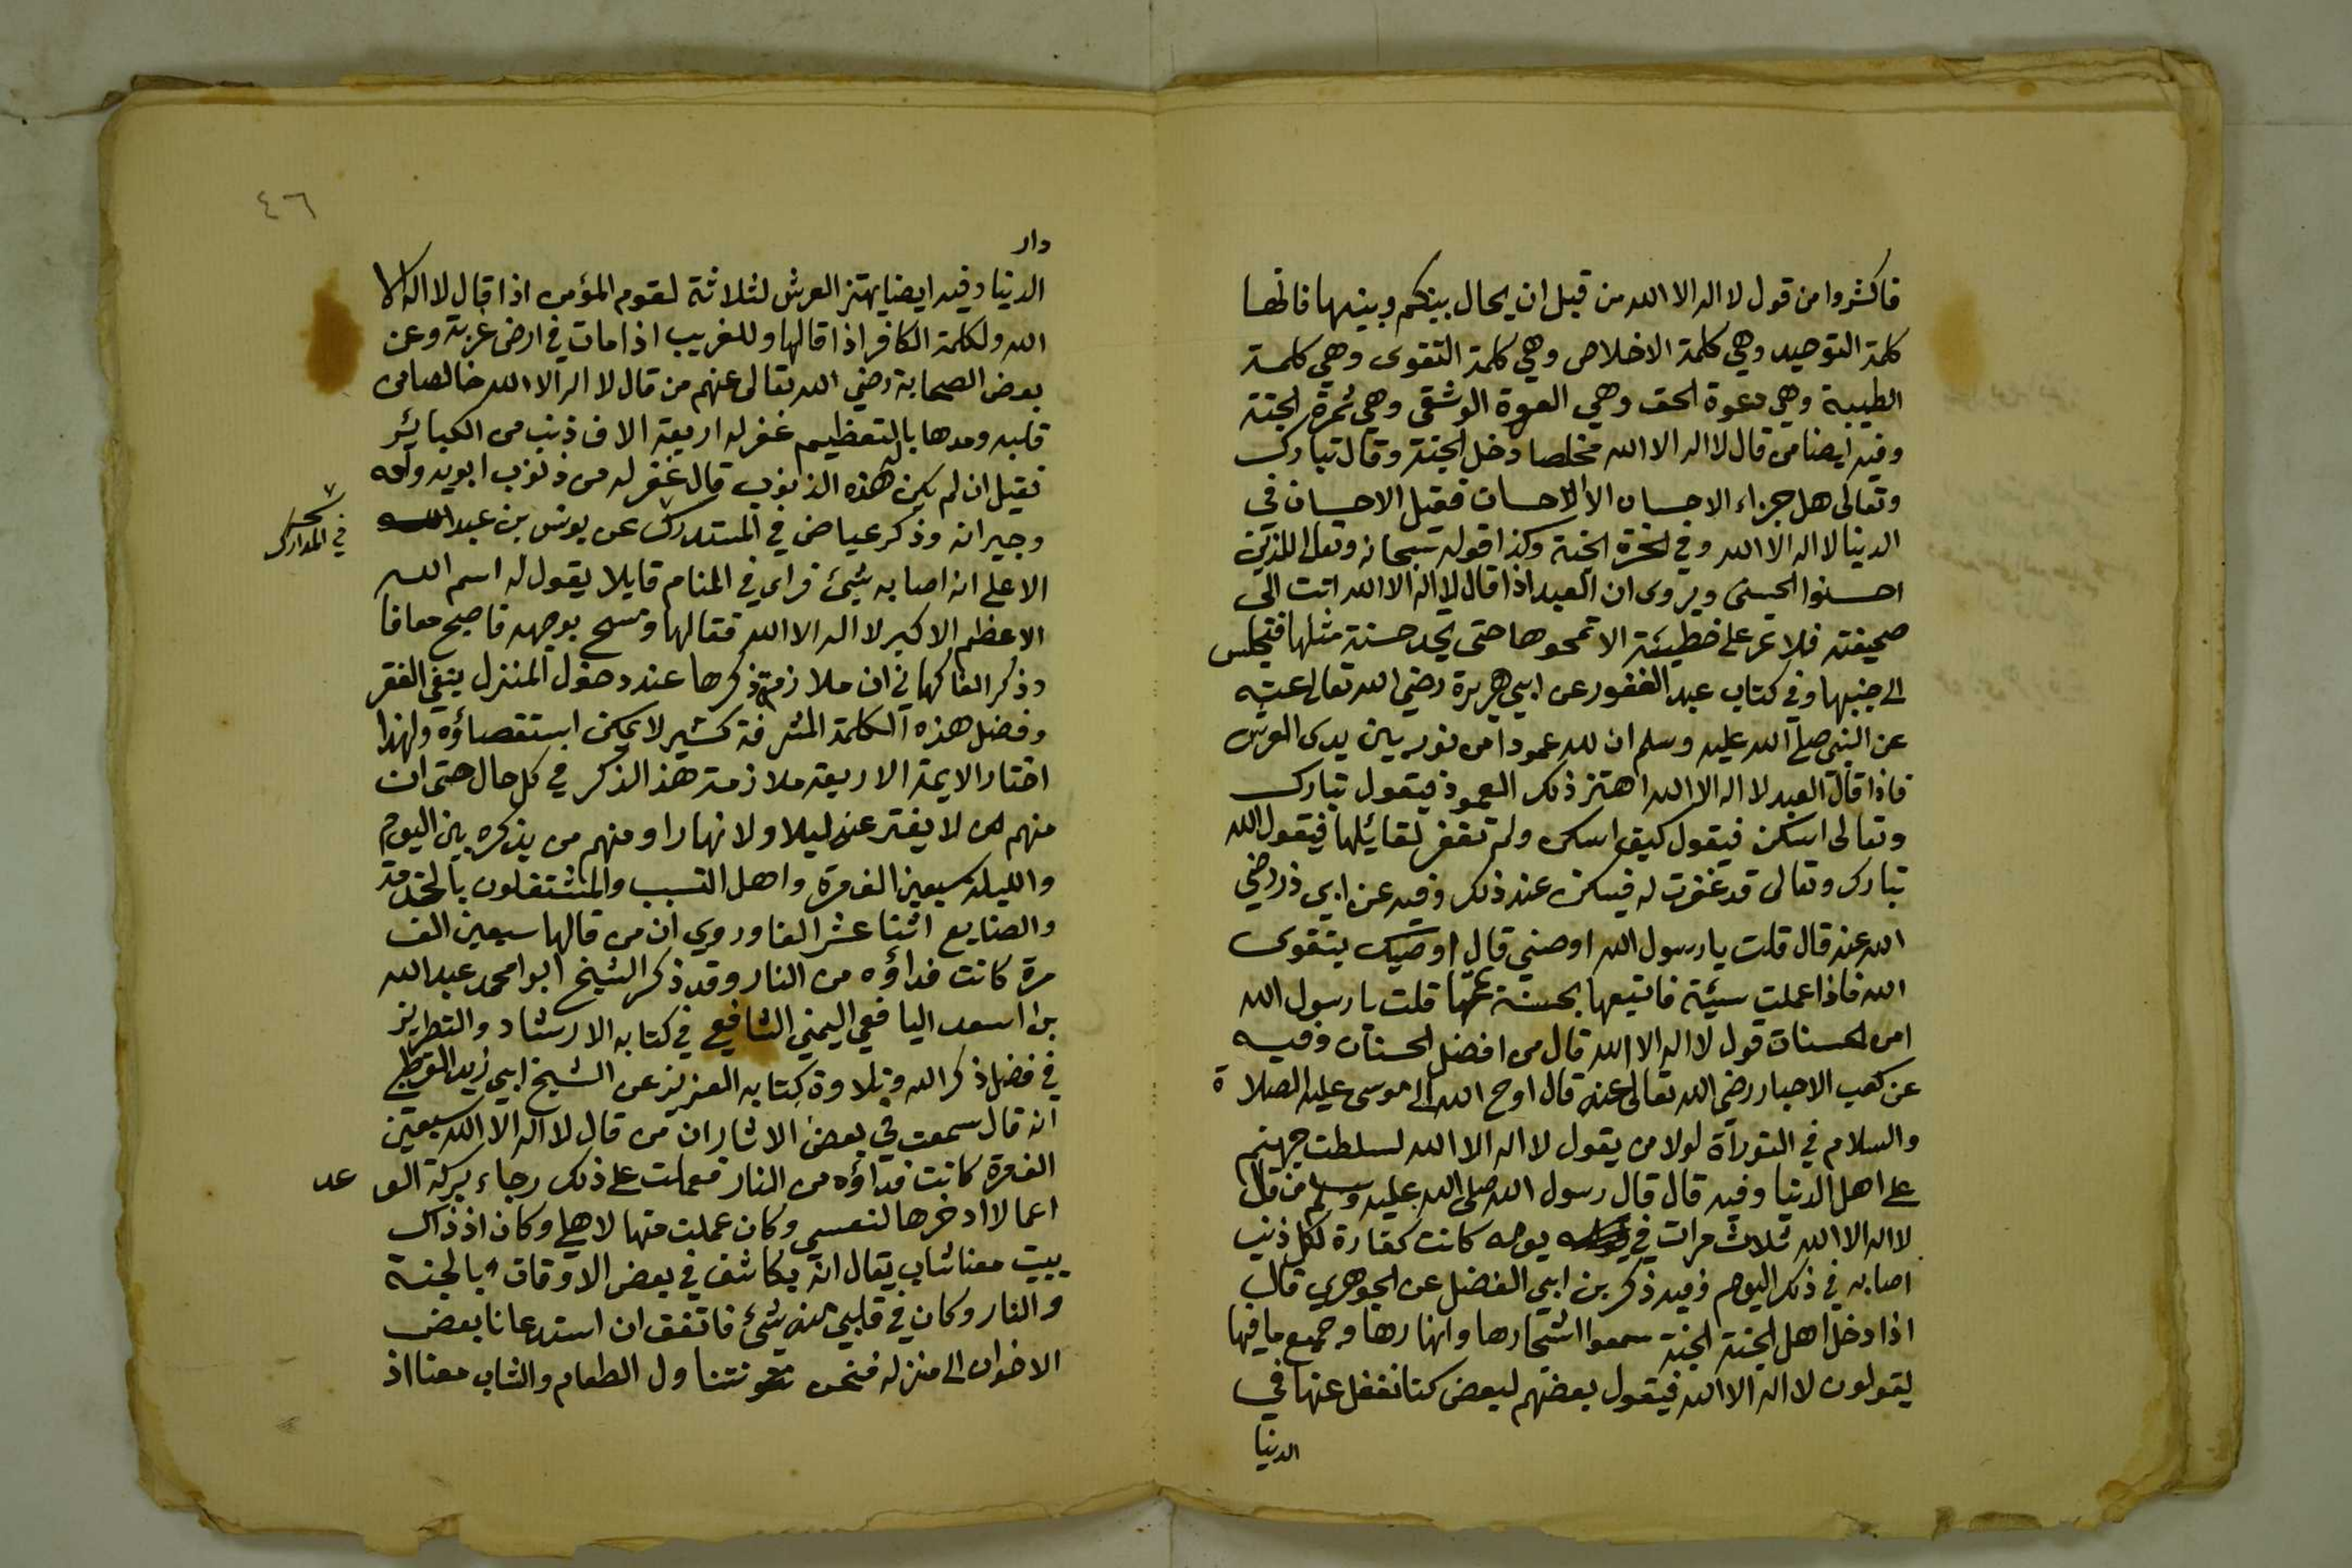 فاكثروا من قول لا اله الا الله من قبل ان يحال بينكم وبينها فانها
كلمة التوحيد وهي كلمة الاخلاص وهي كلمة التقوى وهي كلمة
الطيبة وهي دعوة الحق وهي العروة الوثقى وهي ثمرة الجنة
وفيه ايضا من قال لا اله الا الله مخلصا دخل الجنة وقال تبارك
وتعالى هل جزاء الاحسان الا الاحسان فقيل الاحسان في
الدنيا لا اله الا الله وفي الاخرة الجنة وكذا قوله سبحانه وتعالى للذين
احسنوا الحسنى ويروى ان العبد اذا قال لا اله الا الله اتت الى
صحيفته فلا تمر على خطيئة الا تمحوها حتى يجد حسنة مثلها فتجلس
الى جنبها وفي كتاب عبد الغفور عن ابي هريرة رضي الله تعالى عنه
عن النبي صلى الله عليه وسلم ان لله عمودا من نور بين يدى العرش
فاذا قال العبد لا اله الا الله اهتز ذلك العمود فيقول تبارك
وتعالى اسكن فيقول كيف اسكن ولم تغفر لقائلها فيقول الله
تبارك وتعالى قد غفرت له فيسكن عند ذلك وفيه عن ابي ذر رضي
الله عنه قال قلت يا رسول الله اوصني قال اوصيك بتقوى
الله فاذا عملت سيئة فاتبعها بحسنة تمحها قلت يا رسول الله
امن الحسنات قول لا اله الا الله قال من افضل الحسنات وفيه
عن كعب الاحبار رضي الله تعالى عنه قال اوحى الله الى موسى عليه الصلاة
والسلام في التوراة لولا من يقول لا اله الا الله لسلطت جهنم
على اهل الدنيا وفيه قال قال رسول الله صلى الله عليه وسلم من قال
لا اله الا الله ثلاث مرات في يومه كانت كفارة لكل ذنب
اصابه في ذلك اليوم وفيه ذكر بن ابي الفضل عن الجوهري قال
اذا دخل اهل الجنة الجنة سمعوا اشجارها وانهارها وجميع ما فيها
يقولون لا اله الا الله فيقول بعضهم لبعض كنا نغفل عنها في
الدنيا
٤٦
دار
الدنيا وفيه ايضا يهتز العرش لثلاثة لقوم المؤمن اذا قال لا اله الا
الله ولكلمة الكافر اذا قالها وللغريب اذا مات في ارض غربة وعن
بعض الصحابة رضي الله تعالى عنهم من قال لا اله الا الله خالصا من
قلبه ومدها بالتعظيم غفر له اربعة الاف ذنب من الكبائر
فقيل ان لم يكن له هذه الذنوب قال غفر له من ذنوب ابويه واهله
وجيرانه وذكر عياض في المستدرك عن يونس بن عبد
في المدارك
الاعلى انه اصابه شيئ فراى في المنام قايلا يقول له اسم الله
الاعظم الاكبر لا اله الا الله فقالها ومسح بوجهه فاصبح معافا
وذكر الفاكهاني ان ملازمة ذكرها عند دخول المنزل ينفي الفقر
وفضل هذه الكلمة المشرفة كثير لا يمكن استقصاؤه ولهذا
اختار الايمة الاربعة ملازمة هذ الذكر في كل حال حتى ان
منهم من لا يفتر عنه ليلا ولا نهارا ومنهم من يذكره بين اليوم
والليلة سبعين الف مرة واهل التسبب والمشتغلون بالخدمة
والصنايع اثنا عشر الفا وروي ان من قالها سبعين الف
مرة كانت فداؤه من النار وقد ذكر الشيخ ابو محمد عبد الله
بن اسعد اليافعي اليمني الشافعي في كتابه الارشاد والتطريز
في فضل ذكر الله وتلاوة كتابه العزيز عن الشيخ ابي زيد القرطبي
انه قال سمعت في بعض الاثار ان من قال لا اله الا الله سبعين
الف مرة كانت فداؤه من النار فعملت على ذلك رجاء بركة الو عد
اعمالا ادخرها لنفسي وكان عملت منها لاهلي وكان اذ ذاك
يبيت معنا شاب يقال انه يكاشف في بعض الاوقات بالجنة
والنار وكان في قلبي منه شئ فاتفق ان استدعانا بعض
الاخوان الى منزله فنحن نتناول الطعام والشاب معنا اذ